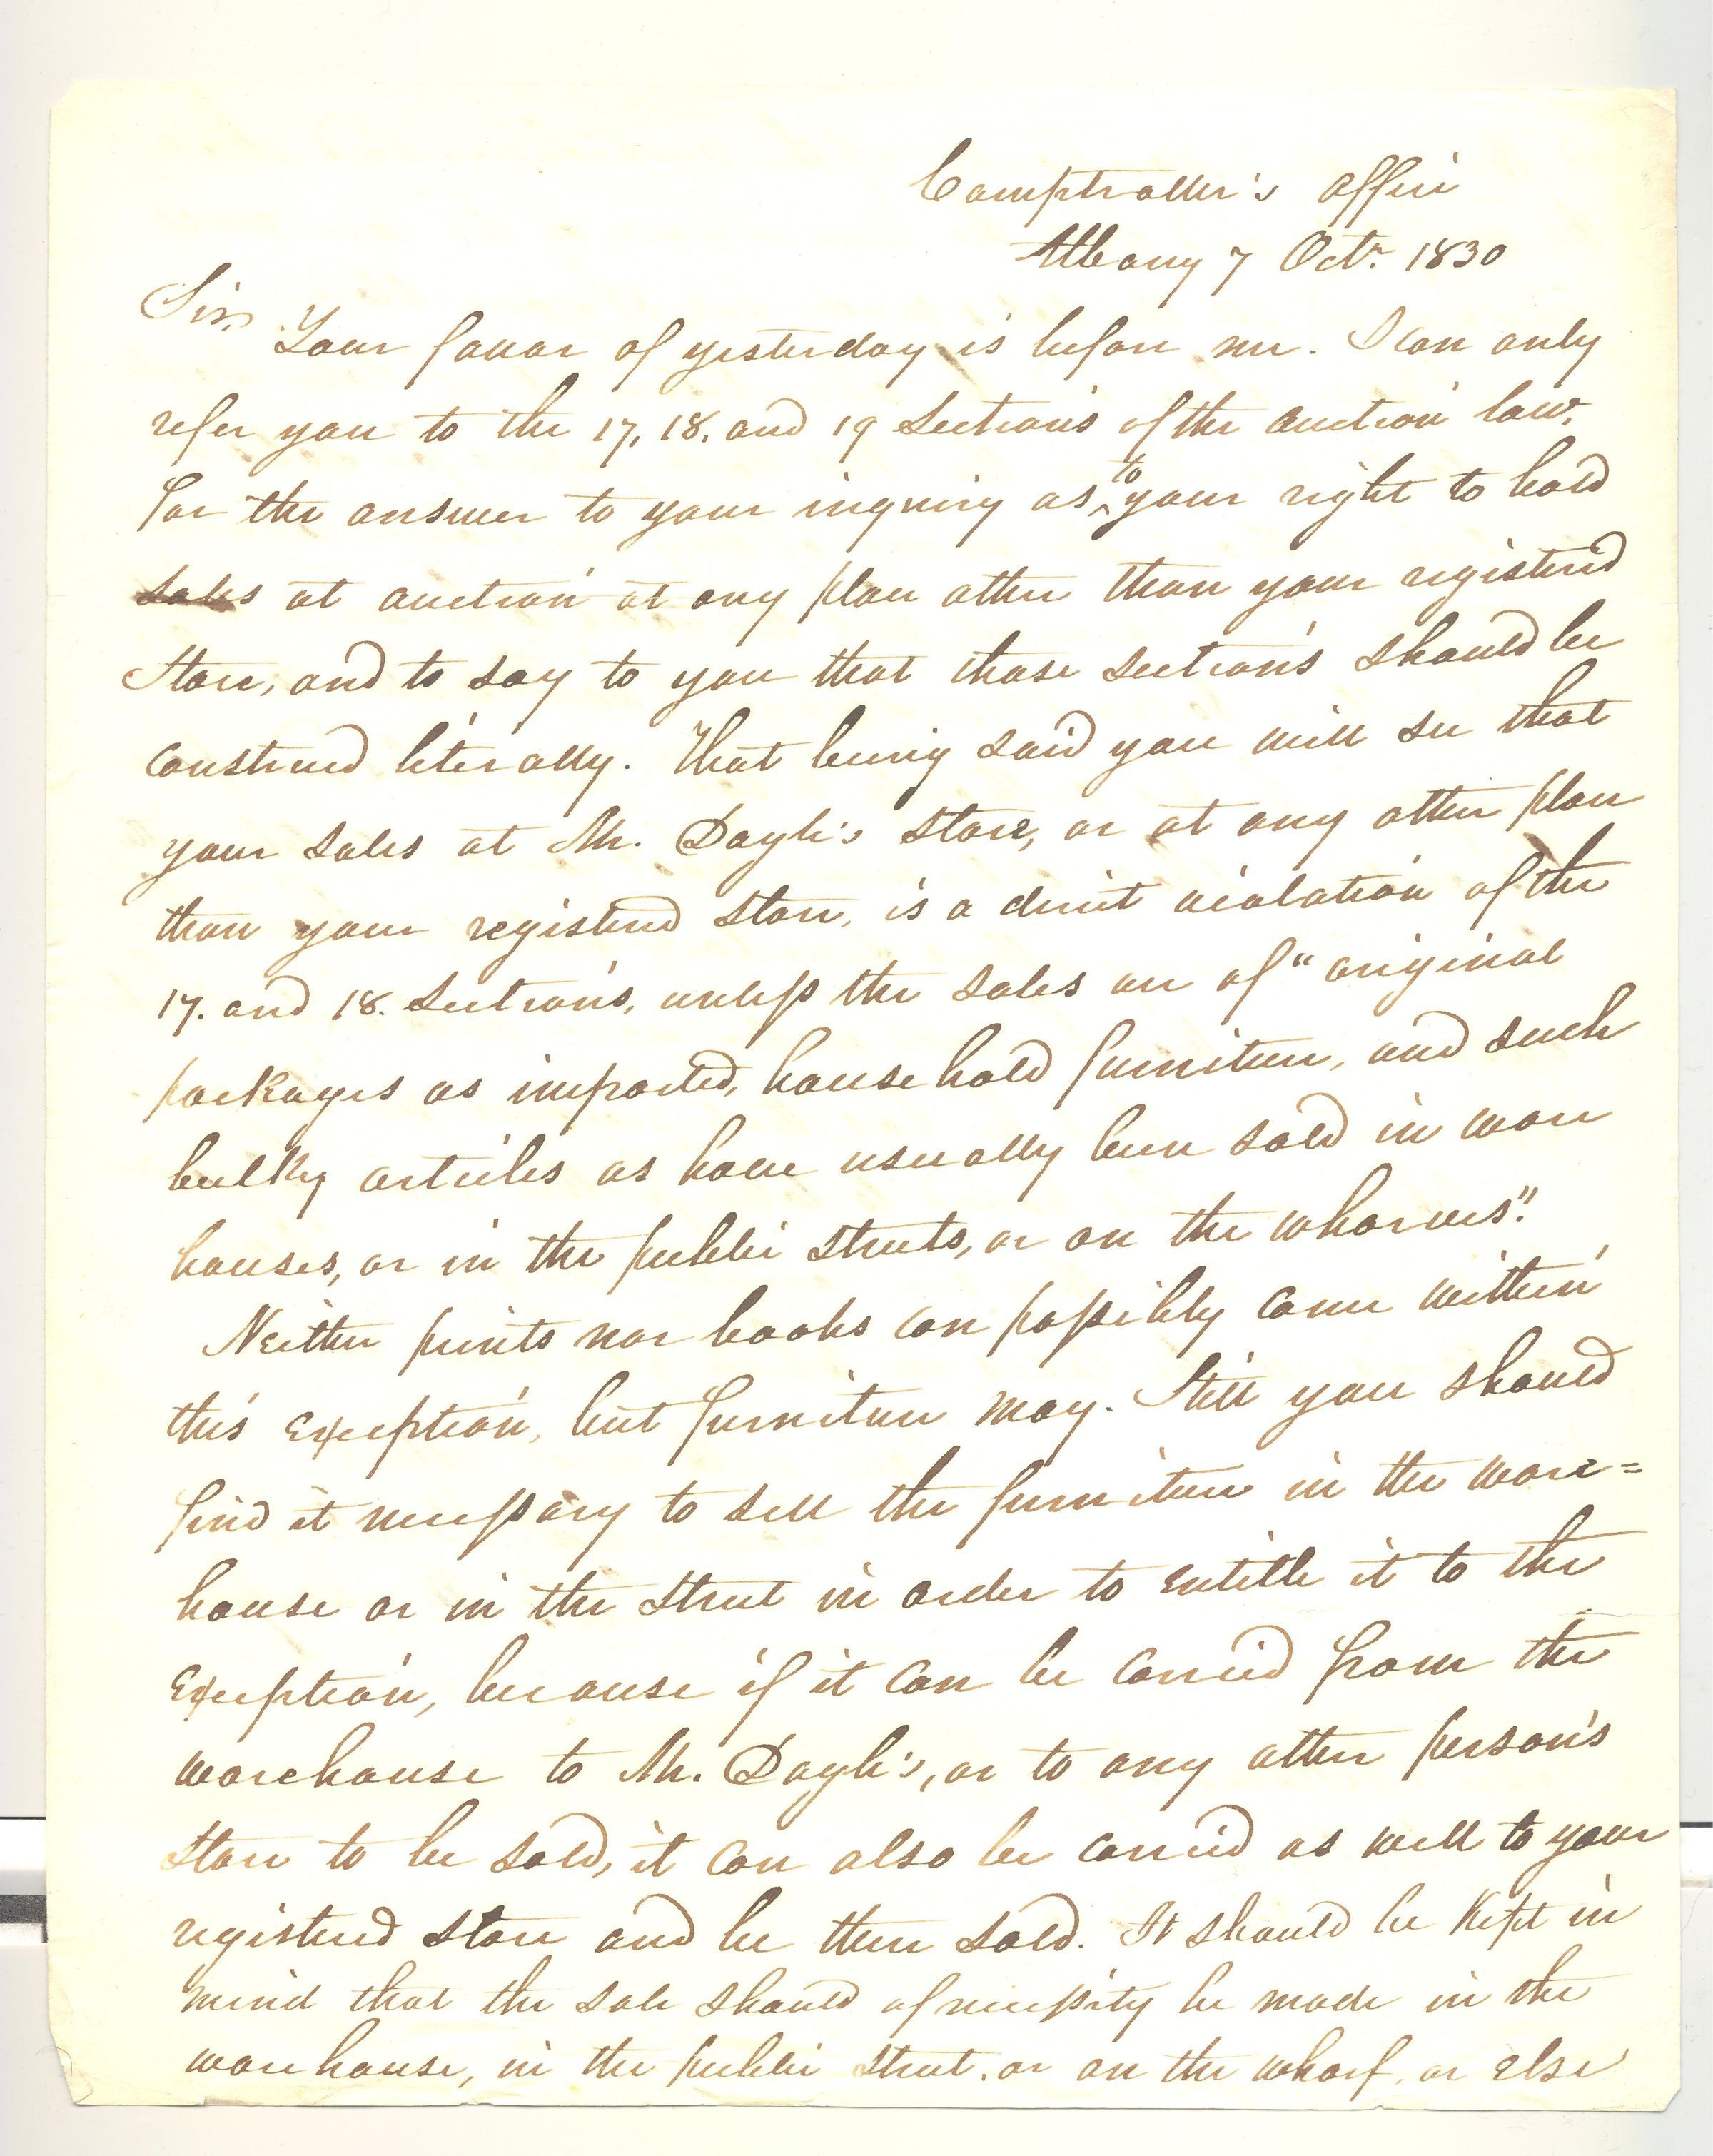 Comptroller's Office
Albany 7 Octr. 1830
Sir,
Your favor of yesterday is before me. I can only
refer you to the 17, 18. and 19 Sections of the auction law,
for the answer to your inquiry as to your right to hold
sales at auction at any place other than your registered
Store, and to say to you that those sections should be
construed literally. That being said you will see that
your sales at Mr. Doyle's store, or at any other place
than your registered store, is a direct violation of the
17. and 18. Sections, unless the sales are of "original
packages as imported, household furniture, and such
bulky articles as have usually been sold in ware
houses, or in the public streets, or on the wharves".
Neither prints nor books can possibly come within
this exception, but furniture may. Still you should
find it necessary to sell the furniture in the ware=
house or in the street in order to entitle it to the
exception, because if it can be carried from the
warehouse to Mr. Doyle's, or to any other person's
store to be sold, it can also be carried as well to your
registered store and be there sold. It should be kept in
mind that the sale should of necessity be made in the
warehouse, in the public street, or on the wharf, or else